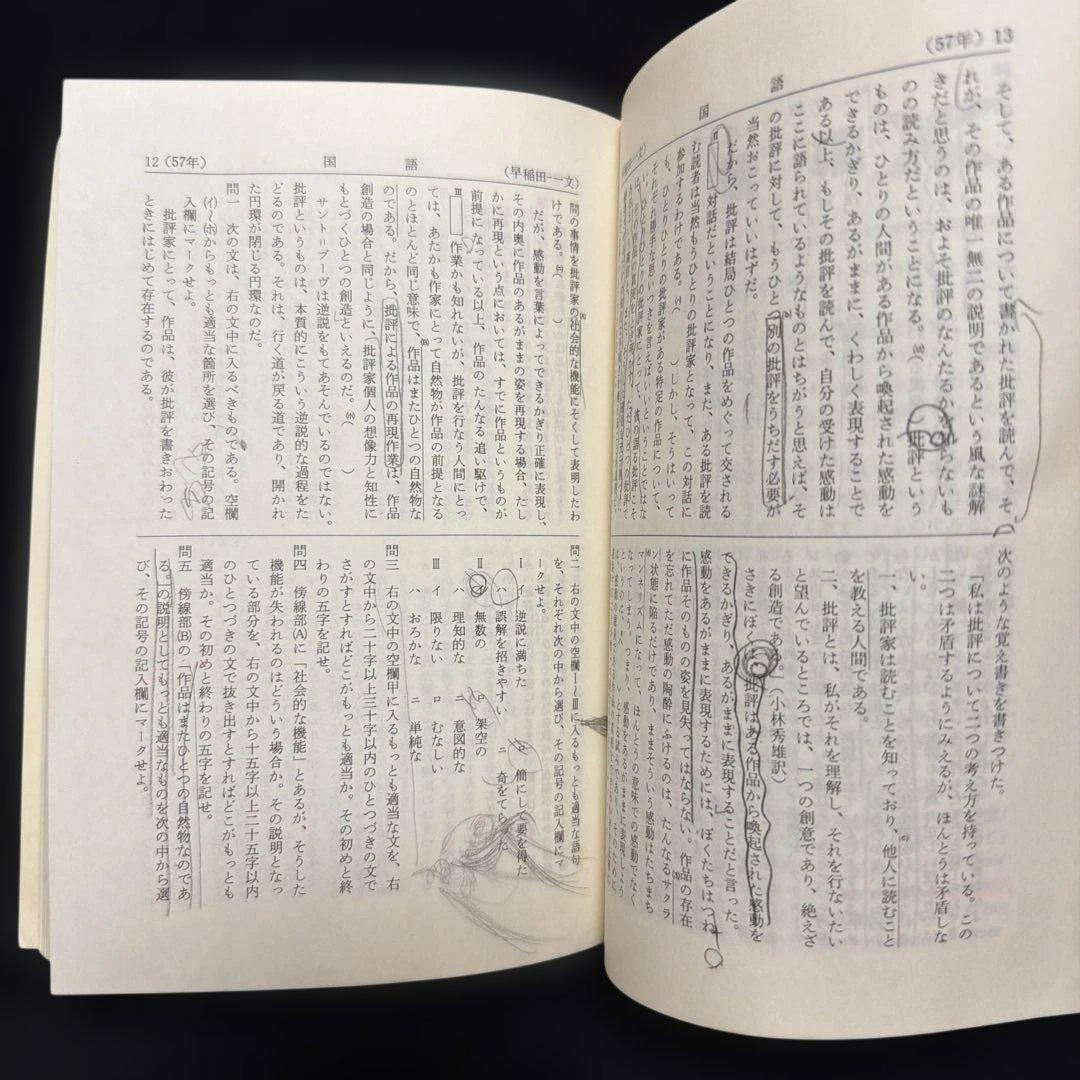 (57年) 13
国 語
そして、ある作品について書かれた批評を読んで、そ
れが、その作品の唯一無二の説明であるという風な謎解
きだと思うのは、およそ批評のなんたるかを知らないも
のの読み方だということになる。
批評という
ものは、ひとりの人間がある作品から喚起された感動を
できるかぎり、あるがままに、くわしく表現することで
ある以上、もしその批評を読んで、自分の受けた感動は
ここに語られているようなものとはちがうと思えば、そ
の批評に対して、もうひとつ別の批評をうちだす必要が
当然おこっていいはずだ。
だから、批評は結局ひとつの作品をめぐって交される
対話だということになり、また、ある批評を読
む読者は当然もうひとりの批評家となって、この対話に
参加するわけである。
しかし、そうはいって
も、ひとりひとりの批評家がある特定の作品について、
それぞれ勝手な思いつきを言えばいいということではな
次のような覚え書きを書きつけた。
「私は批評について二つの考え方を持っている。この
二つは矛盾するようにみえるが、ほんとうは矛盾しな
い。
一、批評家は読むことを知っており、他人に読むこと
を教える人間である。
二、批評とは、私がそれを理解し、それを行ないたい
と望んでいるところでは、一つの創意であり、絶えざ
る創造である。」(小林秀雄訳)
さきにぼくは、批評はある作品から喚起された感動を
できるかぎり、あるがままに表現することだと言った。
感動をあるがままに表現するためには、ぼくたちはつね
に作品そのものの姿を見失ってはならない。作品の存在
を忘れてただ感動の陶酔にふけるのは、たんなるサクラ
ン状態に陥るだけであり、ままそういう感動はたちまち
マンネリズムになって、ほんとうの感動でなく
なってしまう。つまり、感動をあるがままに表現しよう
12 (57年)
国 語
(早稲田-一文)
間の事情を批評家の社会的な機能にそくして表明したわ
けである。
だが、感動を言葉によってできるかぎり正確に表現し、
その内奥に作品のあるがままの姿を再現する場合、たし
かに再現という点においては、すでに作品というものが
前提になっている以上、作品のたんなる追い駆けで、
Ⅲ 作業かも知れないが、批評を行なう人間にとっ
ては、あたかも作家にとって自然物が作品の前提となる
のとほとんど同じ意味で、作品はまたひとつの自然物な
のである。だから、批評による作品の再現作業は、作品
創造の場合と同じように、「批評家個人の想像力と知性に
もとづくひとつの創造」といえるのだ。
サント=ブーヴは逆説をもてあそんでいるのではない。
批評というものは、本質的にこういう逆説的な過程をた
どるのである。それは、行く道が戻る道であり、開かれ
た円環が閉じる円環なのだ。
問一 次の文は、右の文中に入るべきものである。空欄
(イ)〜(ホ)からもっとも適当な箇所を選び、その記号の記
入欄にマークせよ。
批評家にとって、作品は、彼が批評を書きおわった
ときにはじめて存在するのである。
問二 右の文中の空欄Ⅰ〜Ⅲに入るもっとも適当な語句
を、それぞれ次の中から選び、その記号の記入欄にマ
ークせよ。
Ⅰ イ 逆説に満ちた ロ 簡にして要を得た
ハ 誤解を招きやすい ニ 奇をてらった
Ⅱ イ 無数の ロ 架空の
ハ 理知的な ニ 意図的な
Ⅲ イ 限りない ロ むなしい
ハ おろかな ニ 単純な
問三 右の文中の空欄甲に入るもっとも適当な文を、右
の文中から二十字以上三十字以内のひとつづきの文で
さがすとすればどこがもっとも適当か。その初めと終
わりの五字を記せ。
問四 傍線部(A)に「社会的な機能」とあるが、そうした
機能が失われるのはどういう場合か。その説明となっ
ている部分を、右の文中から十五字以上二十五字以内
のひとつづきの文で抜き出すとすればどこがもっとも
適当か。その初めと終わりの五字を記せ。
問五 傍線部(B)の「作品はまたひとつの自然物なのであ
る。」の説明としてもっとも適当なものを次の中から選
び、その記号の記入欄にマークせよ。